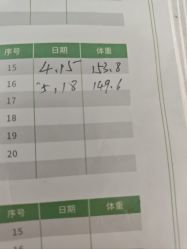 序号 日期 体重
15 4.15 153.8
16 5.18 149.6
17
18
19
20
序号 日期 体重
15
16